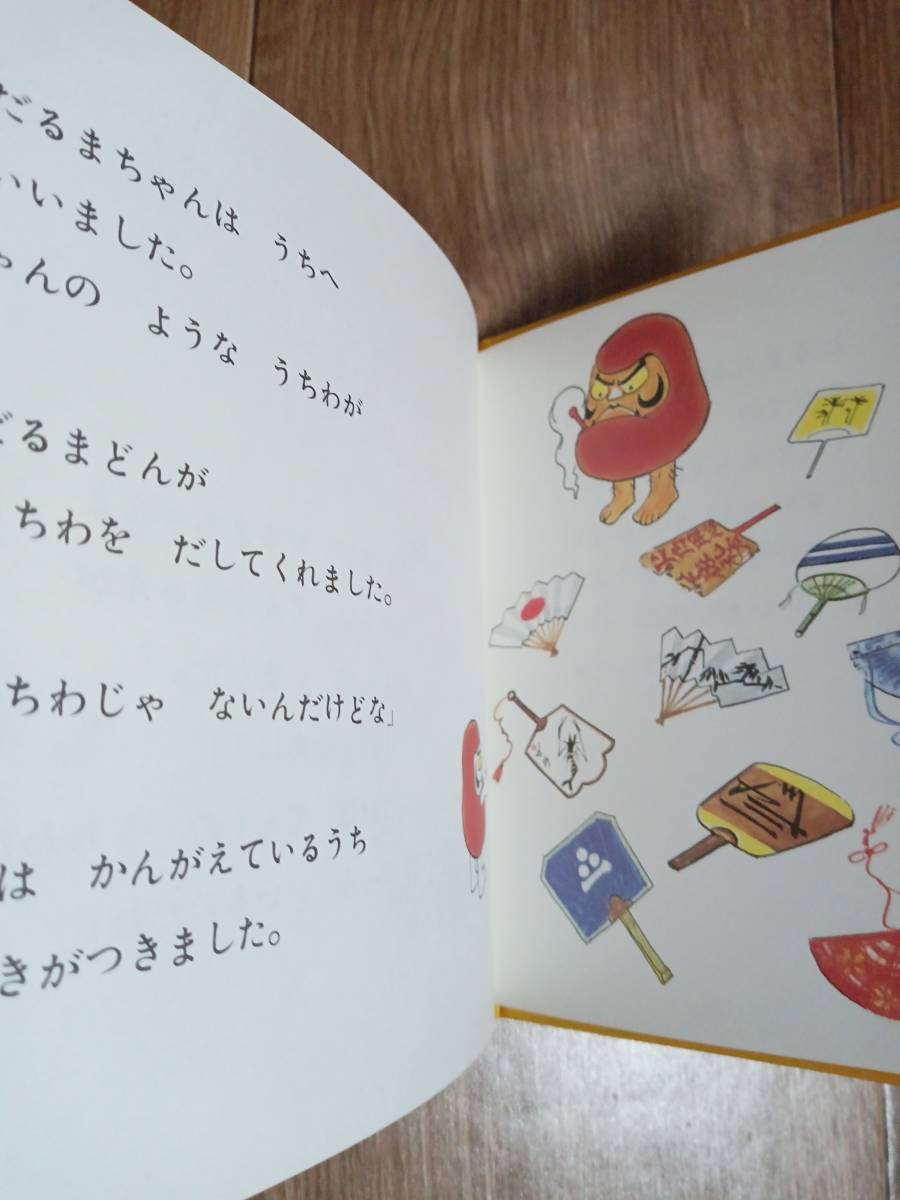 だるまちゃんは うちへ
いいました。
ゃんの ような うちわが
だるまどんが
ちわを だしてくれました。
ちわじゃ ないんだけどな」
は かんがえているうち
きがつきました。